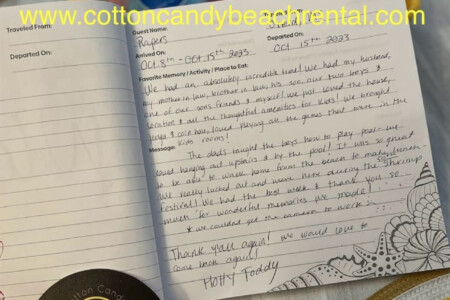 www.cottoncandybeachrental.com
Traveled From:
Departed On:
Guest Name:
Rapers
Arrived On:
Oct 8th - Oct. 15th 2023
Departed On:
Oct 15th 2023
Favorite Memory / Activity / Place to Eat:
We had an absolutely incredible time! We had my husband,
my mother in law, brother in law, his son, our two boys &
one of our sons friends & myself! We just loved the house,
location & all the thoughtful amenities for kids! We brought
and loved having all the games that were in the
kids rooms!
Message:
The dads taught the boys how to play pool. We
loved hanging out upstairs & by the pool! It was so great
to be able to walk home from the beach to make lunch.
We really lucked out and were here during the Shrimp
Festival! We had the best week & thank you so
much for wonderful memories we made!
& we couldn't get the camera to work
Thank y'all again! We would love to
come back again!
Hotty Toddy
otton Cand